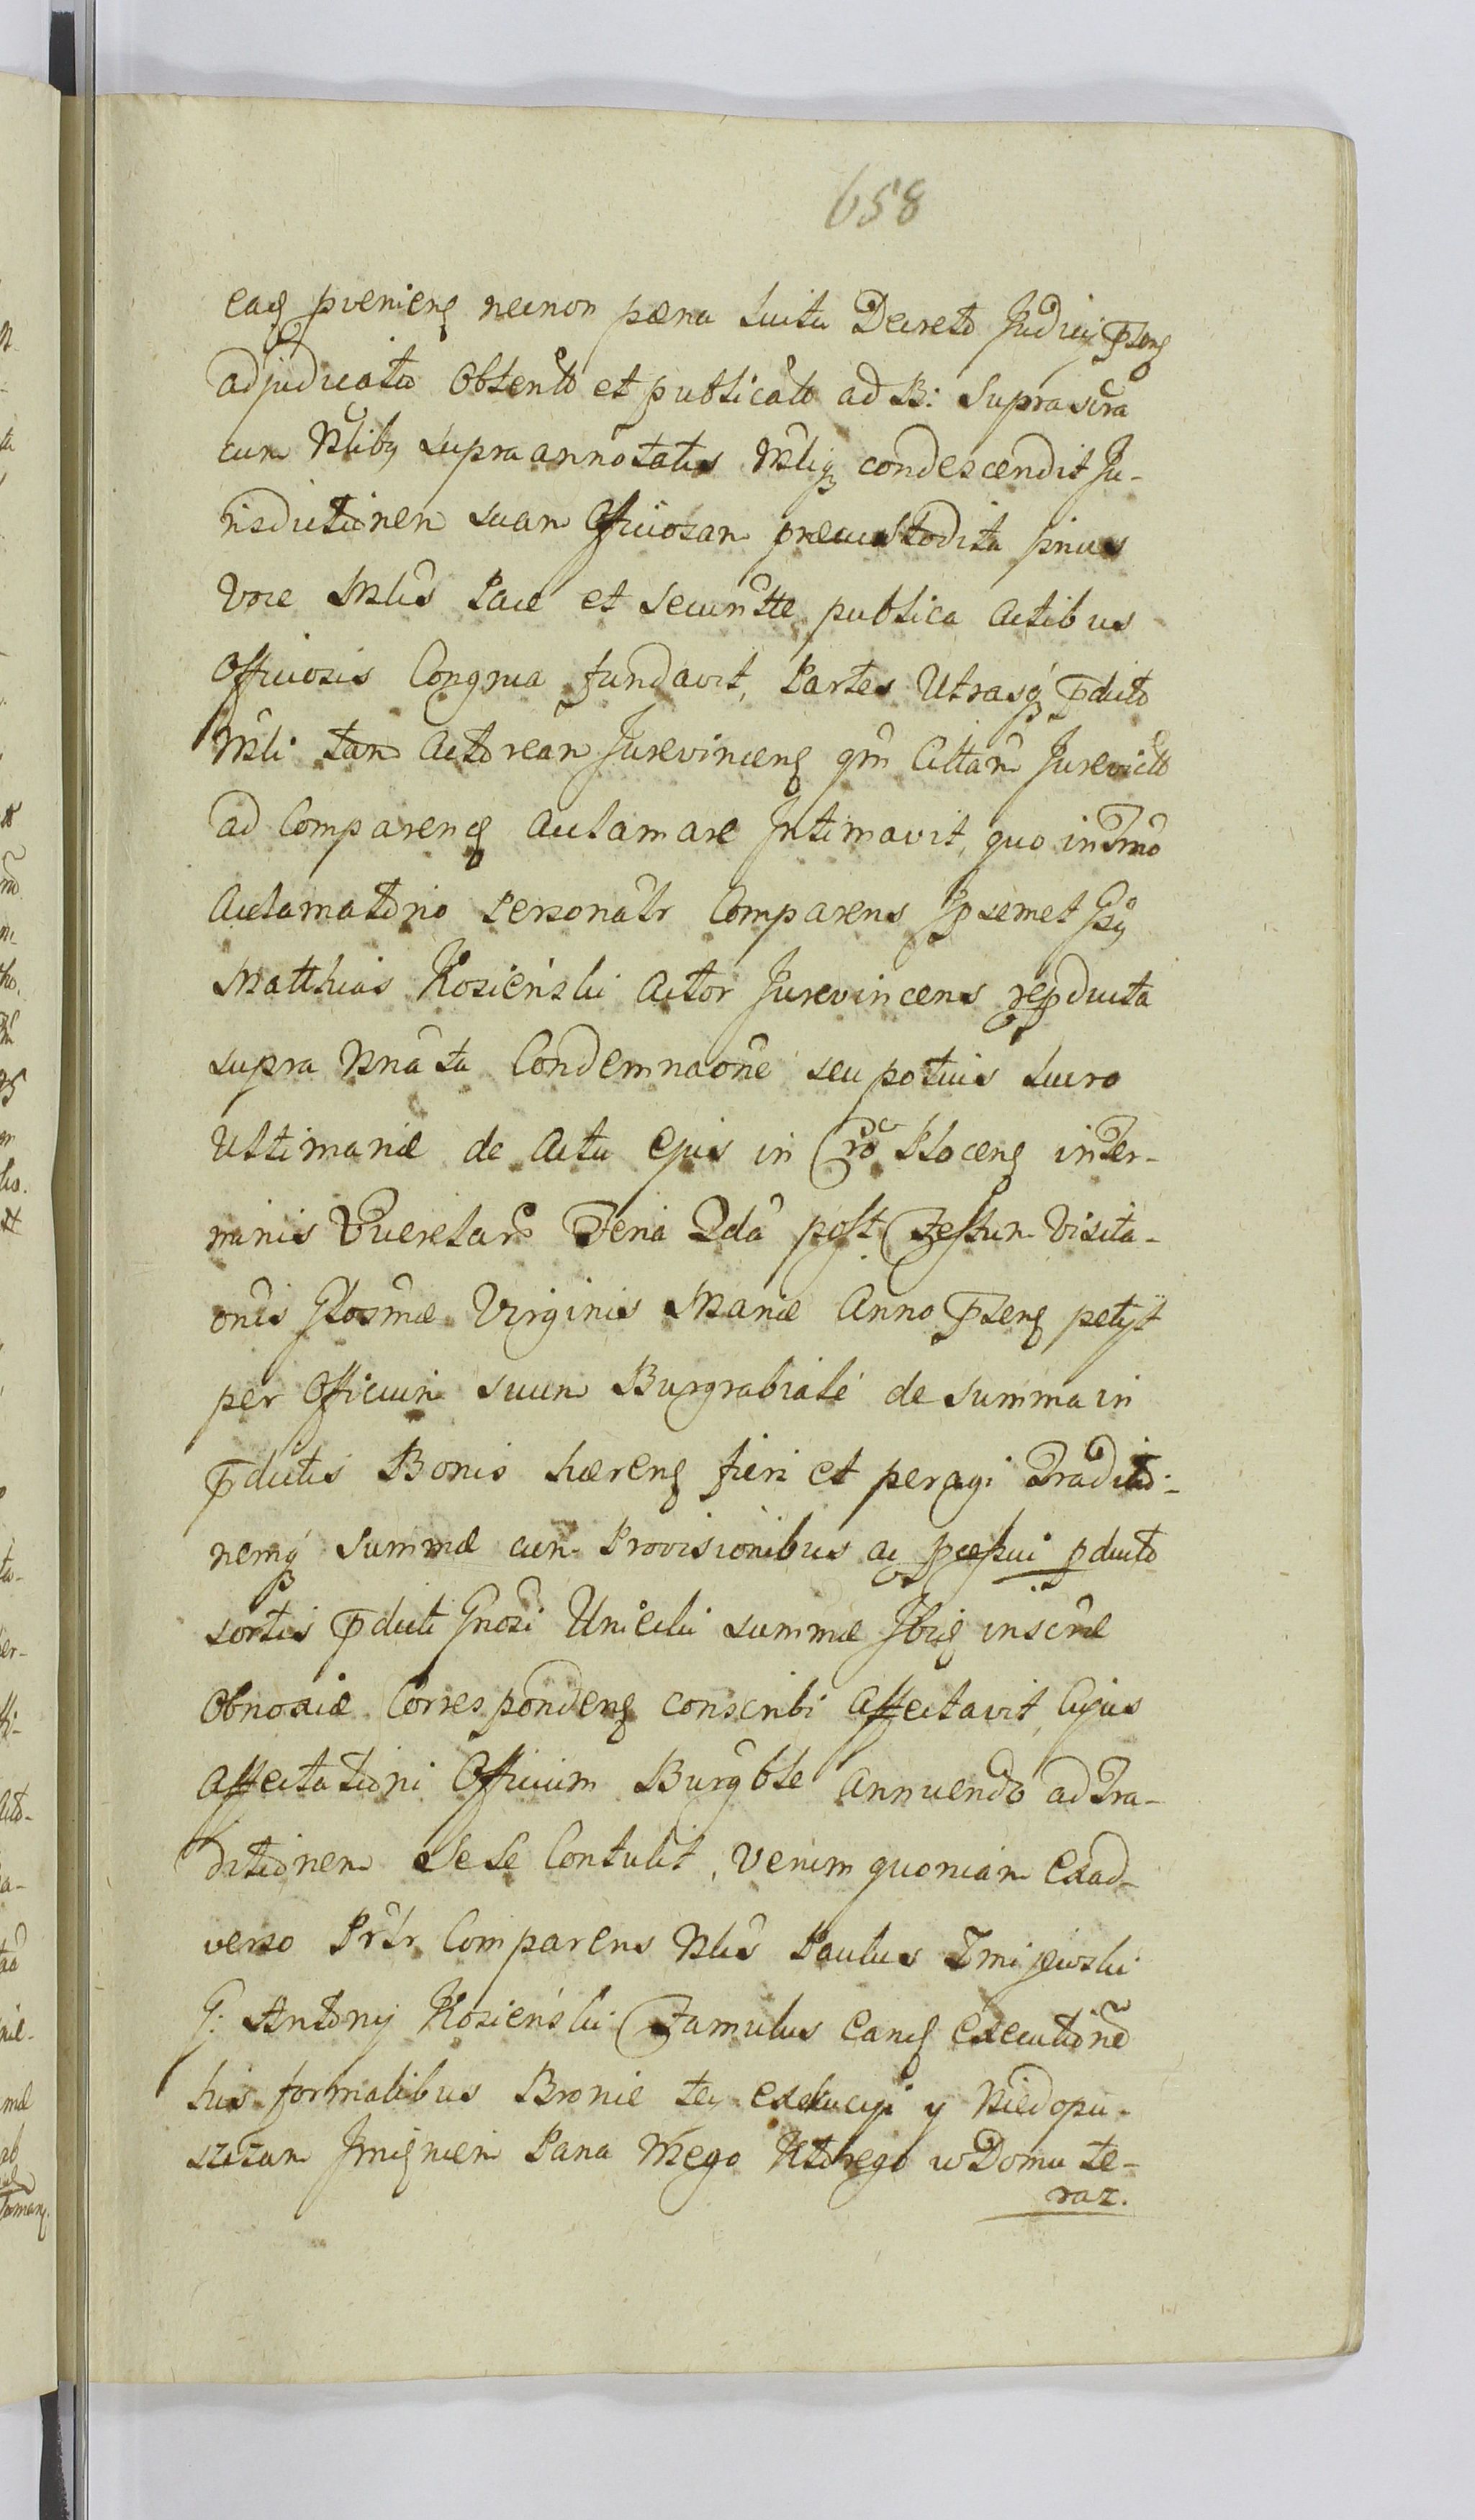 658
eaꝗ pvenienꝗ necnon pæna luita Decreto Judicij pñtenꝗ
adjudicata Obtento et publicato ad B: Suprascra
cum Nlibꝫ supra annotatis Mliqꝫ condescendit Ju-
risdictionem suam Officiosam præcustodita prius
Voce Mlis Pace et securitte publica Actibus
Officiosis Congrua fundavit, Partes Utrasqꝫ pducto
Mli tam Actoream Jurevincenꝗ qm Cittam Jurevicto
ad Comparenꝗ Acclamare Intimavit, quo in Tmno
Acclamatorio Personalr Comparens Ipsemet Gsus
Matthias Kosieński Actor Jurevincens repducta
supra Nnata Condemnaone seu potius Lucro
Ultimariæ de Actu ejus in Cro Ploceng in Ter-
minis Querelarum Feria 2da post Festum Visita-
onis Glosmæ Virginis Mariæ Anno pñtenꝗ petijt
per Officium suum Burgrabiale de summa in
pductis Bonis hærenꝗ fieri et peragi Traditio-
nemqꝫ summæ cum Provisionibus ac pducto
sortis pducti Gnosi Unicki summæ inscræ
Obnoxiæ Correspondenꝗ conscribi Affectavit, Cujus
Affectationi Officium Burgble Annuendo ad Tra-
ditionem Sese Contulit, Verum quoniam Exad-
verso Prlr Comparens Nlis Paulus Zmijewski
G: Antonij Kosieński Famulus eanꝗ Executione
his formalibus Bronie tey Exekucyi y Niedopu-
szczam Imieniem Pana Mego Ktorego w Domu te-
raz.